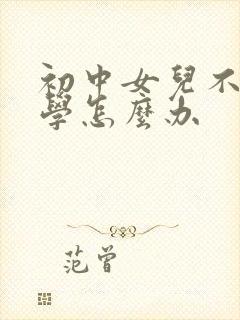 初中女兒不
學怎麼办
范曾